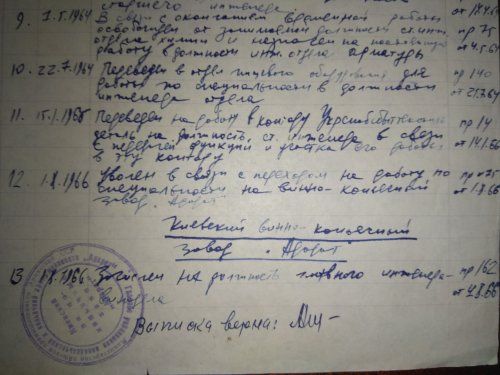 старшего инженера
от 17.4.64
9. 7.5.1964 В связи с окончанием временной работы пр 75
освобожден от занимаемой должности ст. инж. от 4.5.64
отдела химии и назначен на постоянную
работу в должности инж. отдела арматуры
10. 22.7.1964 Переведен в отдел пищевого оборудования для пр 140
работы по специальности в должности от 21.7.64
инженера отдела
11. Переведен на работу в контору пр 14
деталь на должность ст. инженера в связи от 14.1.66
с передачей функций и участка его работы
в эту контору
12. 1.8.1966 Уволен в связи с переходом на работу по
специальности на винно-коньячный от 1.8.66
завод "Арарат"
Киевский винно-коньячный
завод "Арарат"
13 1.8.1966 Зачислен на должность главного инженера- пр 162
винодела от 4.8.66
Выписка верна: